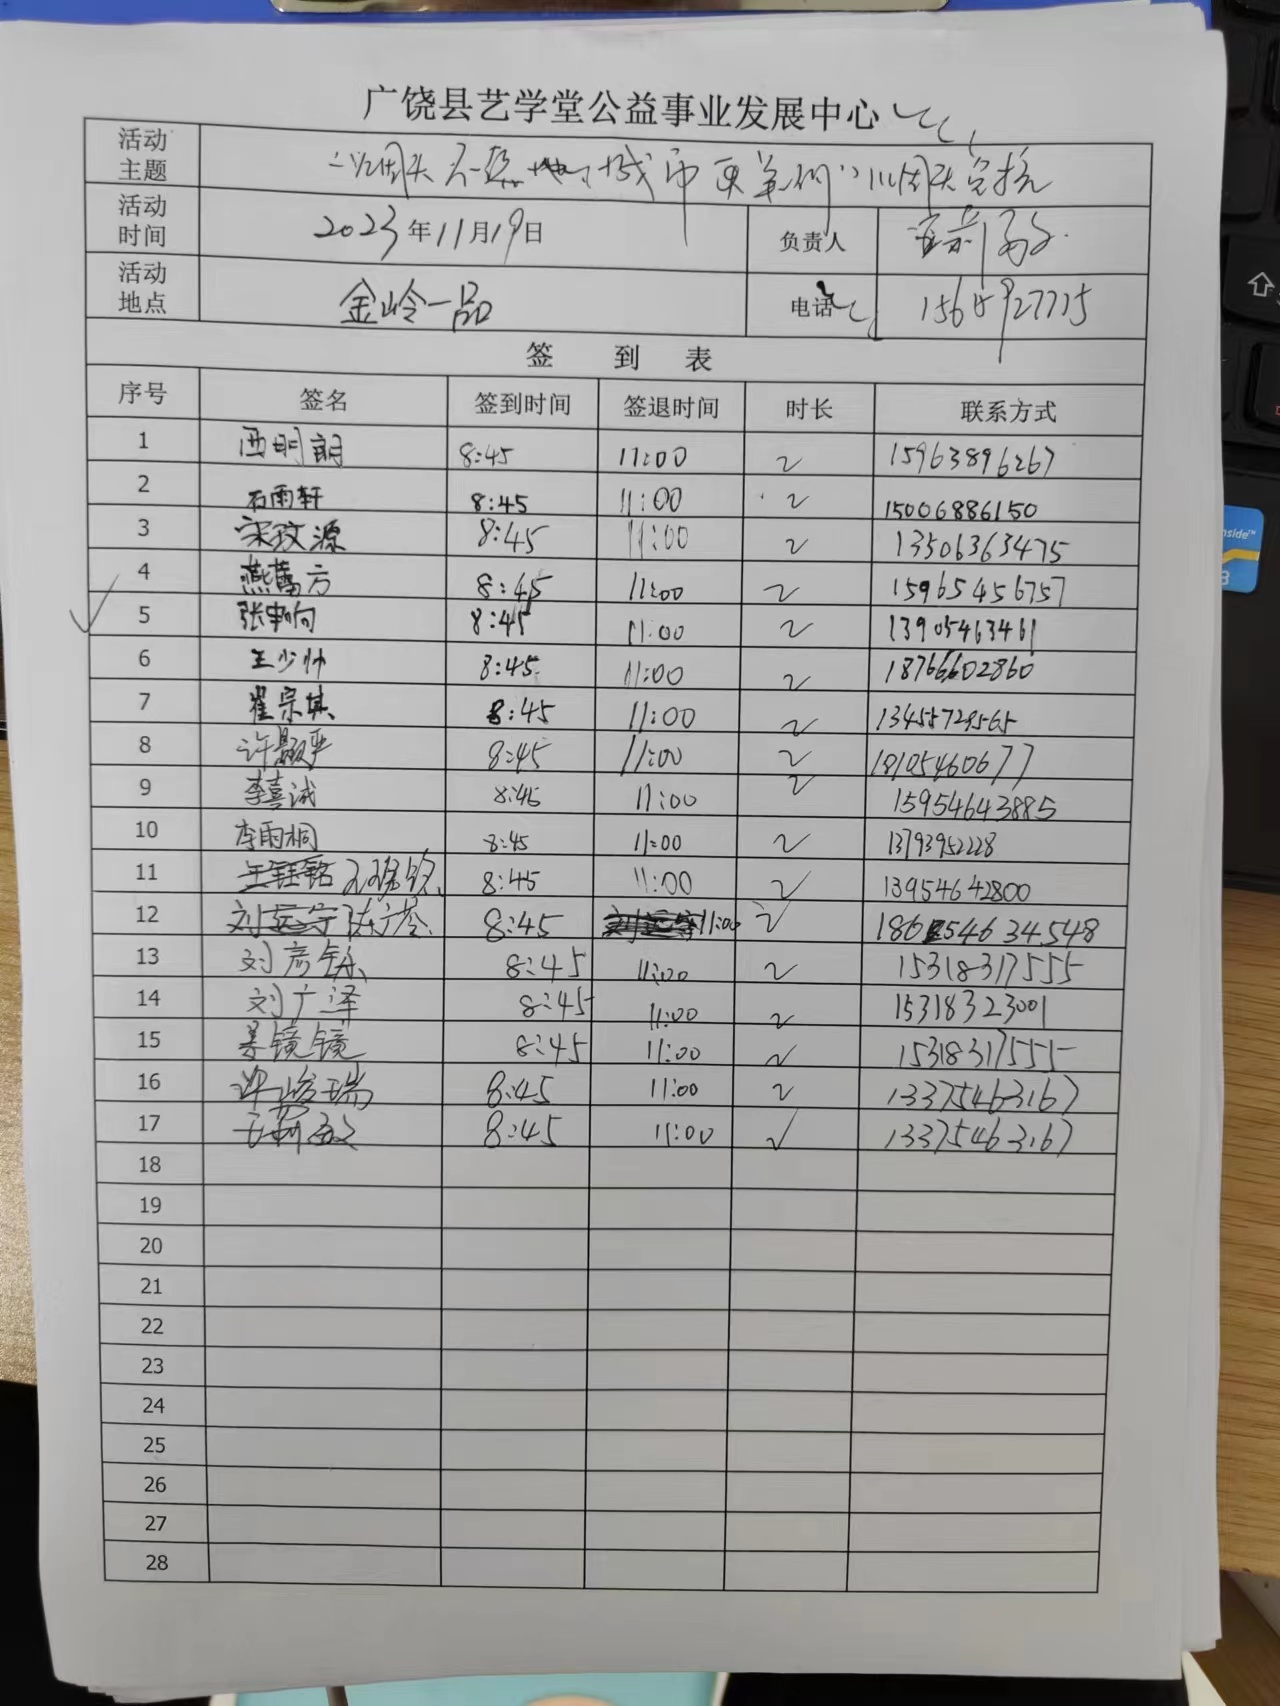 广饶县艺学堂公益事业发展中心
活动主题 烟头不落地 城市更美丽 烟头兑换
活动时间 2023年11月19日 负责人
活动地点 金岭一品 电话
签 到 表
序号 签名 签到时间 签退时间 时长 联系方式
1 西明朗 8:45 11:00 2 15963896267
2 石雨轩 8:45 11:00 2 15006886150
3 宋玟源 8:45 11:00 2 13506363475
4 燕 方 8:45 11:00 2 15965456757
5 张申响 8:45 11:00 2 13905463461
6 王少帅 8:45 11:00 2 18766602860
7 崔宗琪 8:45 11:00 2 13455729565
8 许 8:45 11:00 2 18105460677
9 李喜诚 8:45 11:00 2 15954643885
10 李雨桐 8:45 11:00 2 13793952228
11 8:45 11:00 2 13954642800
12 8:45 11:00 2
13 刘彦铄 8:45 11:00 2 15318317555
14 刘广泽 8:45 11:00 2 15318323001
15 镜镜 8:45 11:00 2 15318317555
16 许峻瑞 8:45 11:00 2 13375463167
17 8:45 11:00 13375463167
18
19
20
21
22
23
24
25
26
27
28